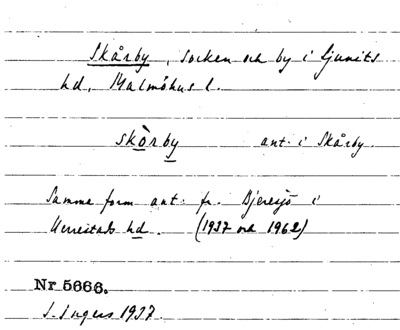 Skårby, socken och by i Ljunits
hd, Malmöhus l.
skòrby ant. i Skårby.
Samma form ant. fr. Bjeresjö i
Herrestads hd. (1937 och 1962)
Nr 5666.
I. Ingers 1937.